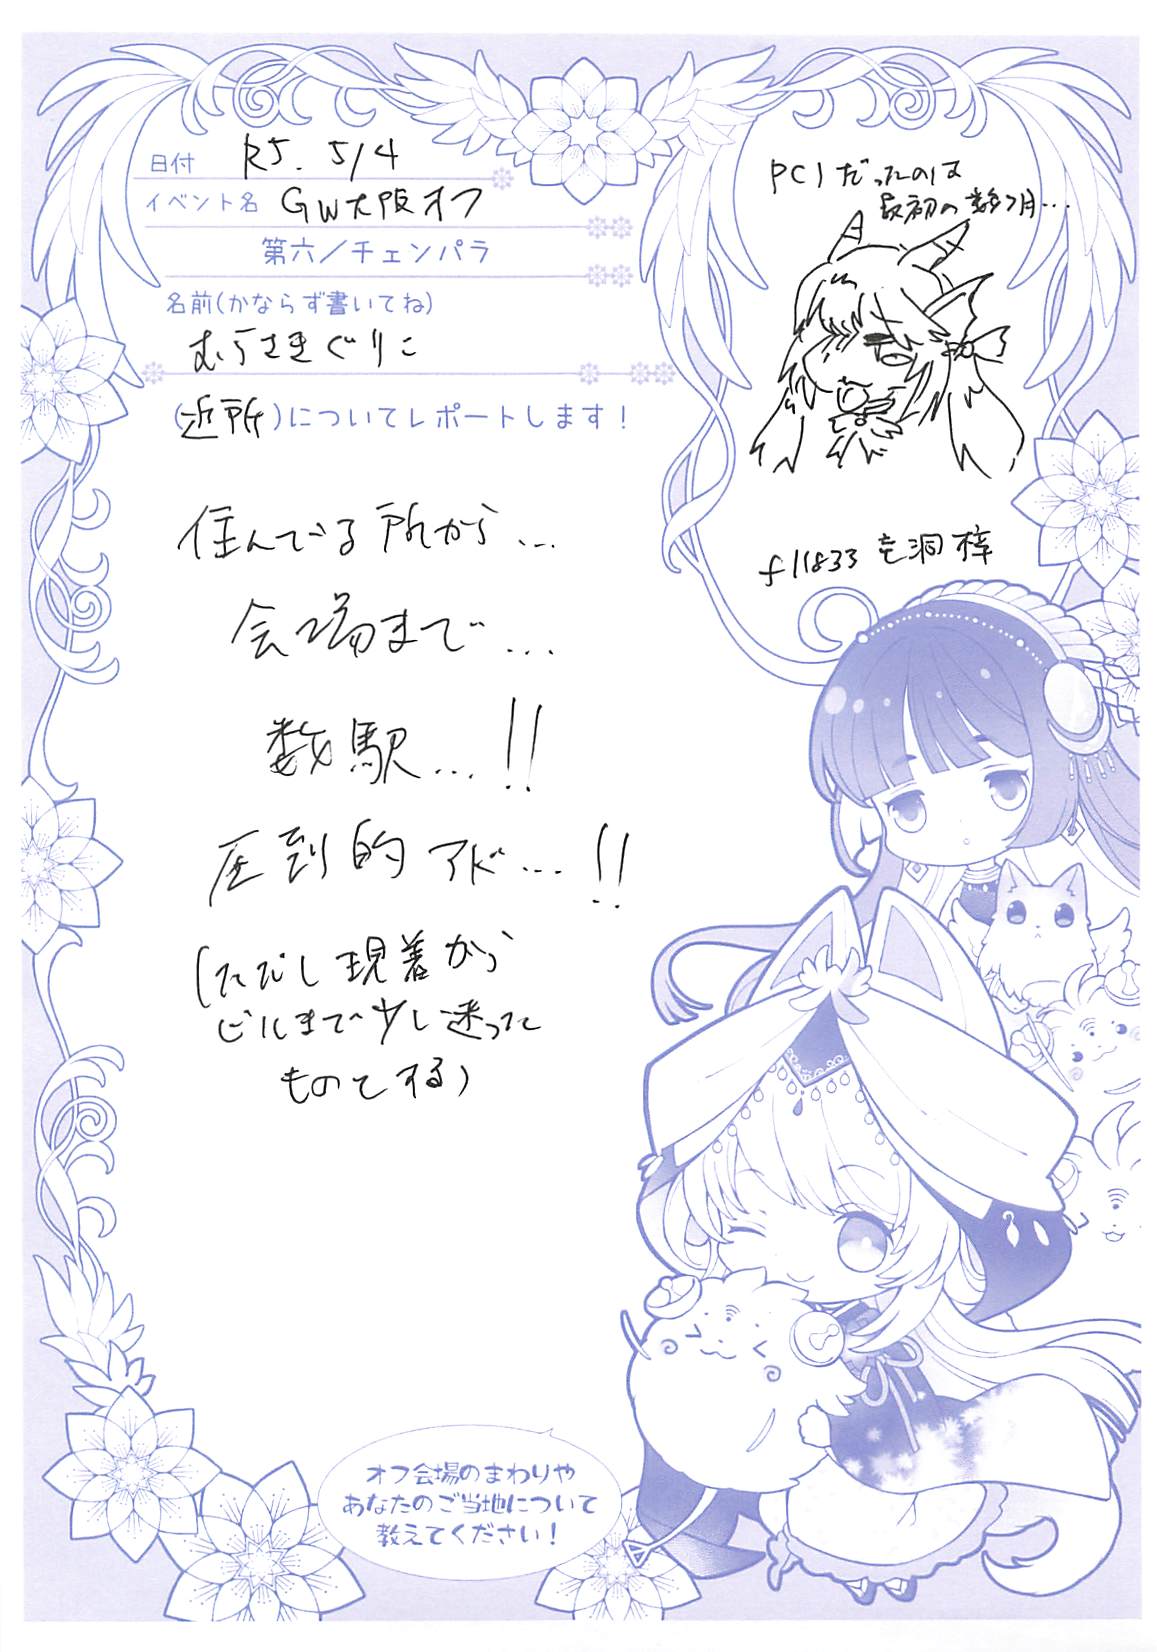 日付 R5. 5/4
イベント名 GW大阪オフ
第六／チェンパラ
名前(かならず書いてね)
むらさきぐりこ
(近所)についてレポートします！
住んでる所から…
会場まで…
数駅…!!
圧到的アド…!!
(ただし現着から
ビルまで少し迷った
ものとする)
PC1だったのは
最初の数ヶ月…
f11833 空洞 梓
オフ会場のまわりや
あなたのご当地について
教えてください！